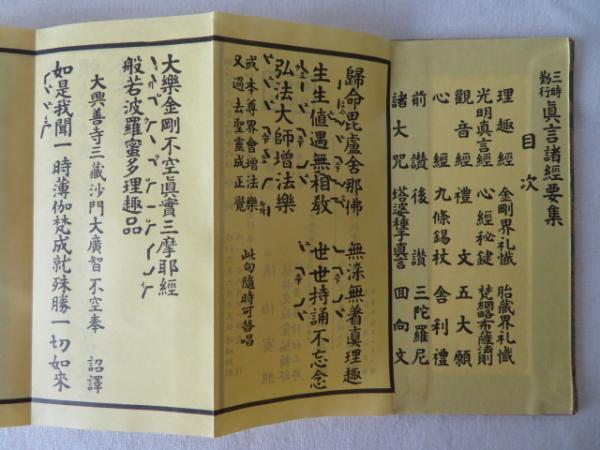 三時勤行 眞言諸經要集
目次
理趣經 金剛界礼懺 胎藏界礼懺
光明眞言經 心經秘鍵 梵網略布薩法則
觀音經 禮文 五大願
心經 九條錫杖 舎利禮
前讃 後讃 三陀羅尼
諸大咒 塔婆種子眞言 回向文
歸命毘盧舎那佛 無染無着眞理趣
生生値遇無相教 世世持誦不忘念
弘法大師增法樂
或本尊界會增法樂
又過去聖靈成正覺 此句隨時可替唱
大樂金剛不空眞實三摩耶經
般若波羅蜜多理趣品
大興善寺三藏沙門大廣智不空奉 詔譯
如是我聞一時薄伽梵成就殊勝一切如來